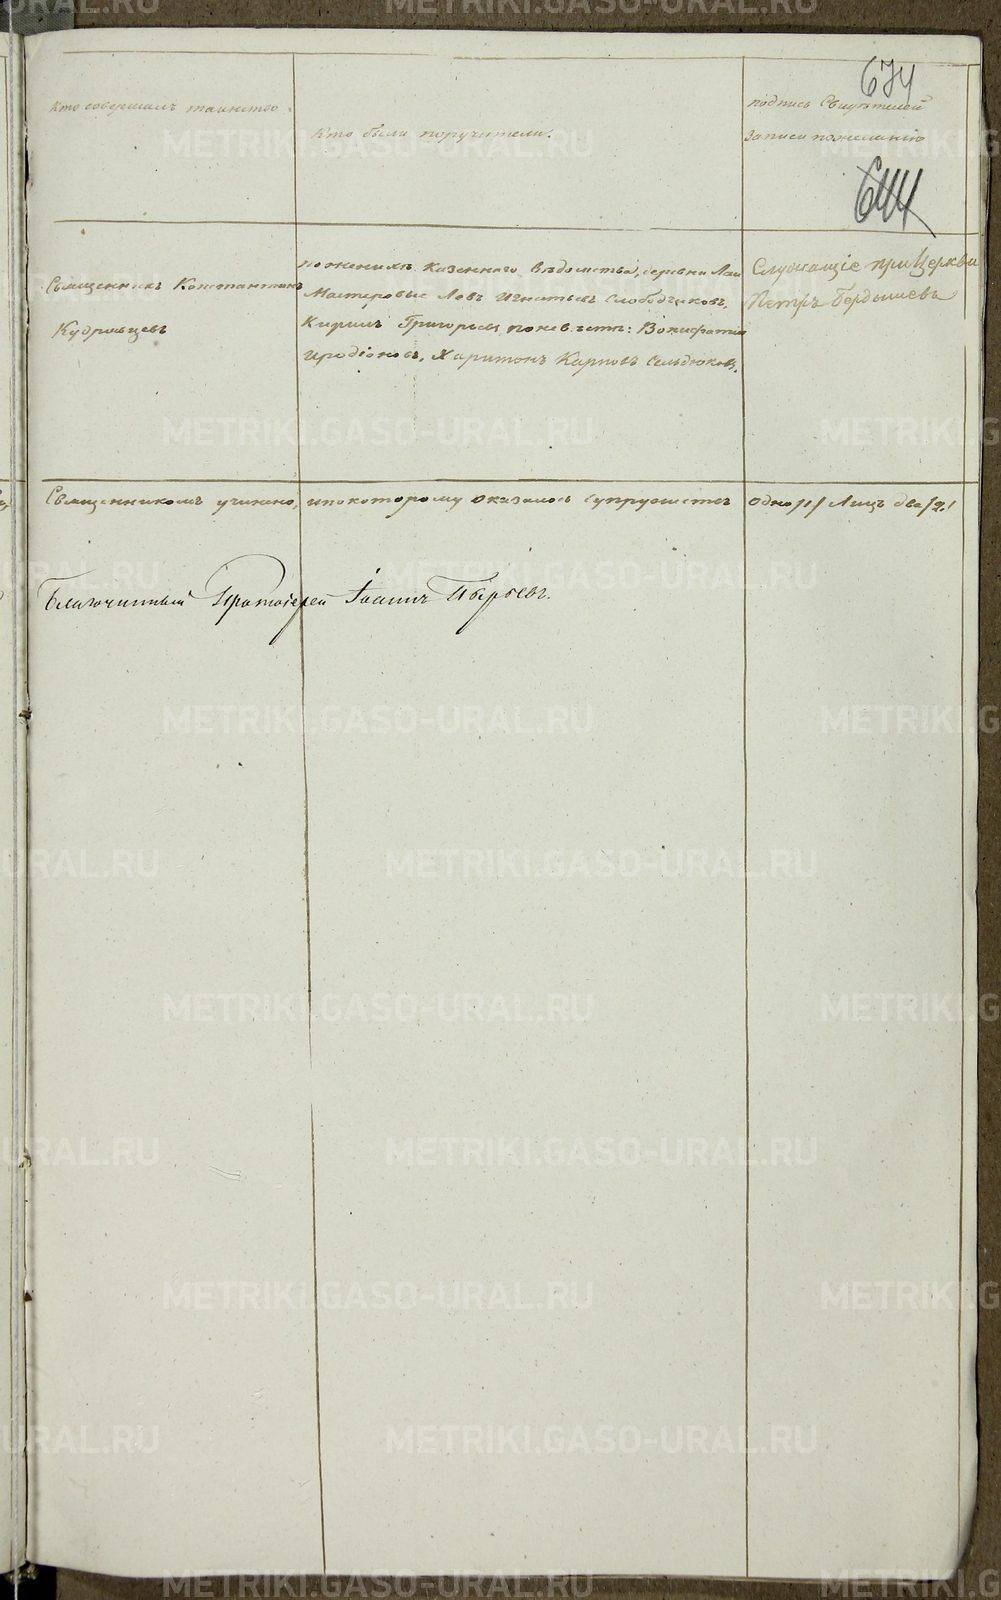 674
Кто совершалъ таинство.
Кто были поручители.
подпись Свидѣтелей
Записи пожеланію
644
Священникъ Константинъ
Кудрявцевъ
пожених: Казеннаго Вѣдомства, деревни Лаи
Мастеровые Левъ Игнатьевъ Слободчиковъ,
Кирилъ Григорьевъ, поневѣсте: Вонифатій
Иродіоновъ, Харитонъ Карповъ Сельдюковъ.
Служащіе при Церкви
Петръ Бердышевъ
Священникомъ учинено, и по которому оказалось супружествъ одно /1/ Лицъ два /2./
Благочинный Протоіерей Іоаннъ Пырьевъ.
METRIKI.GASO-URAL.RU